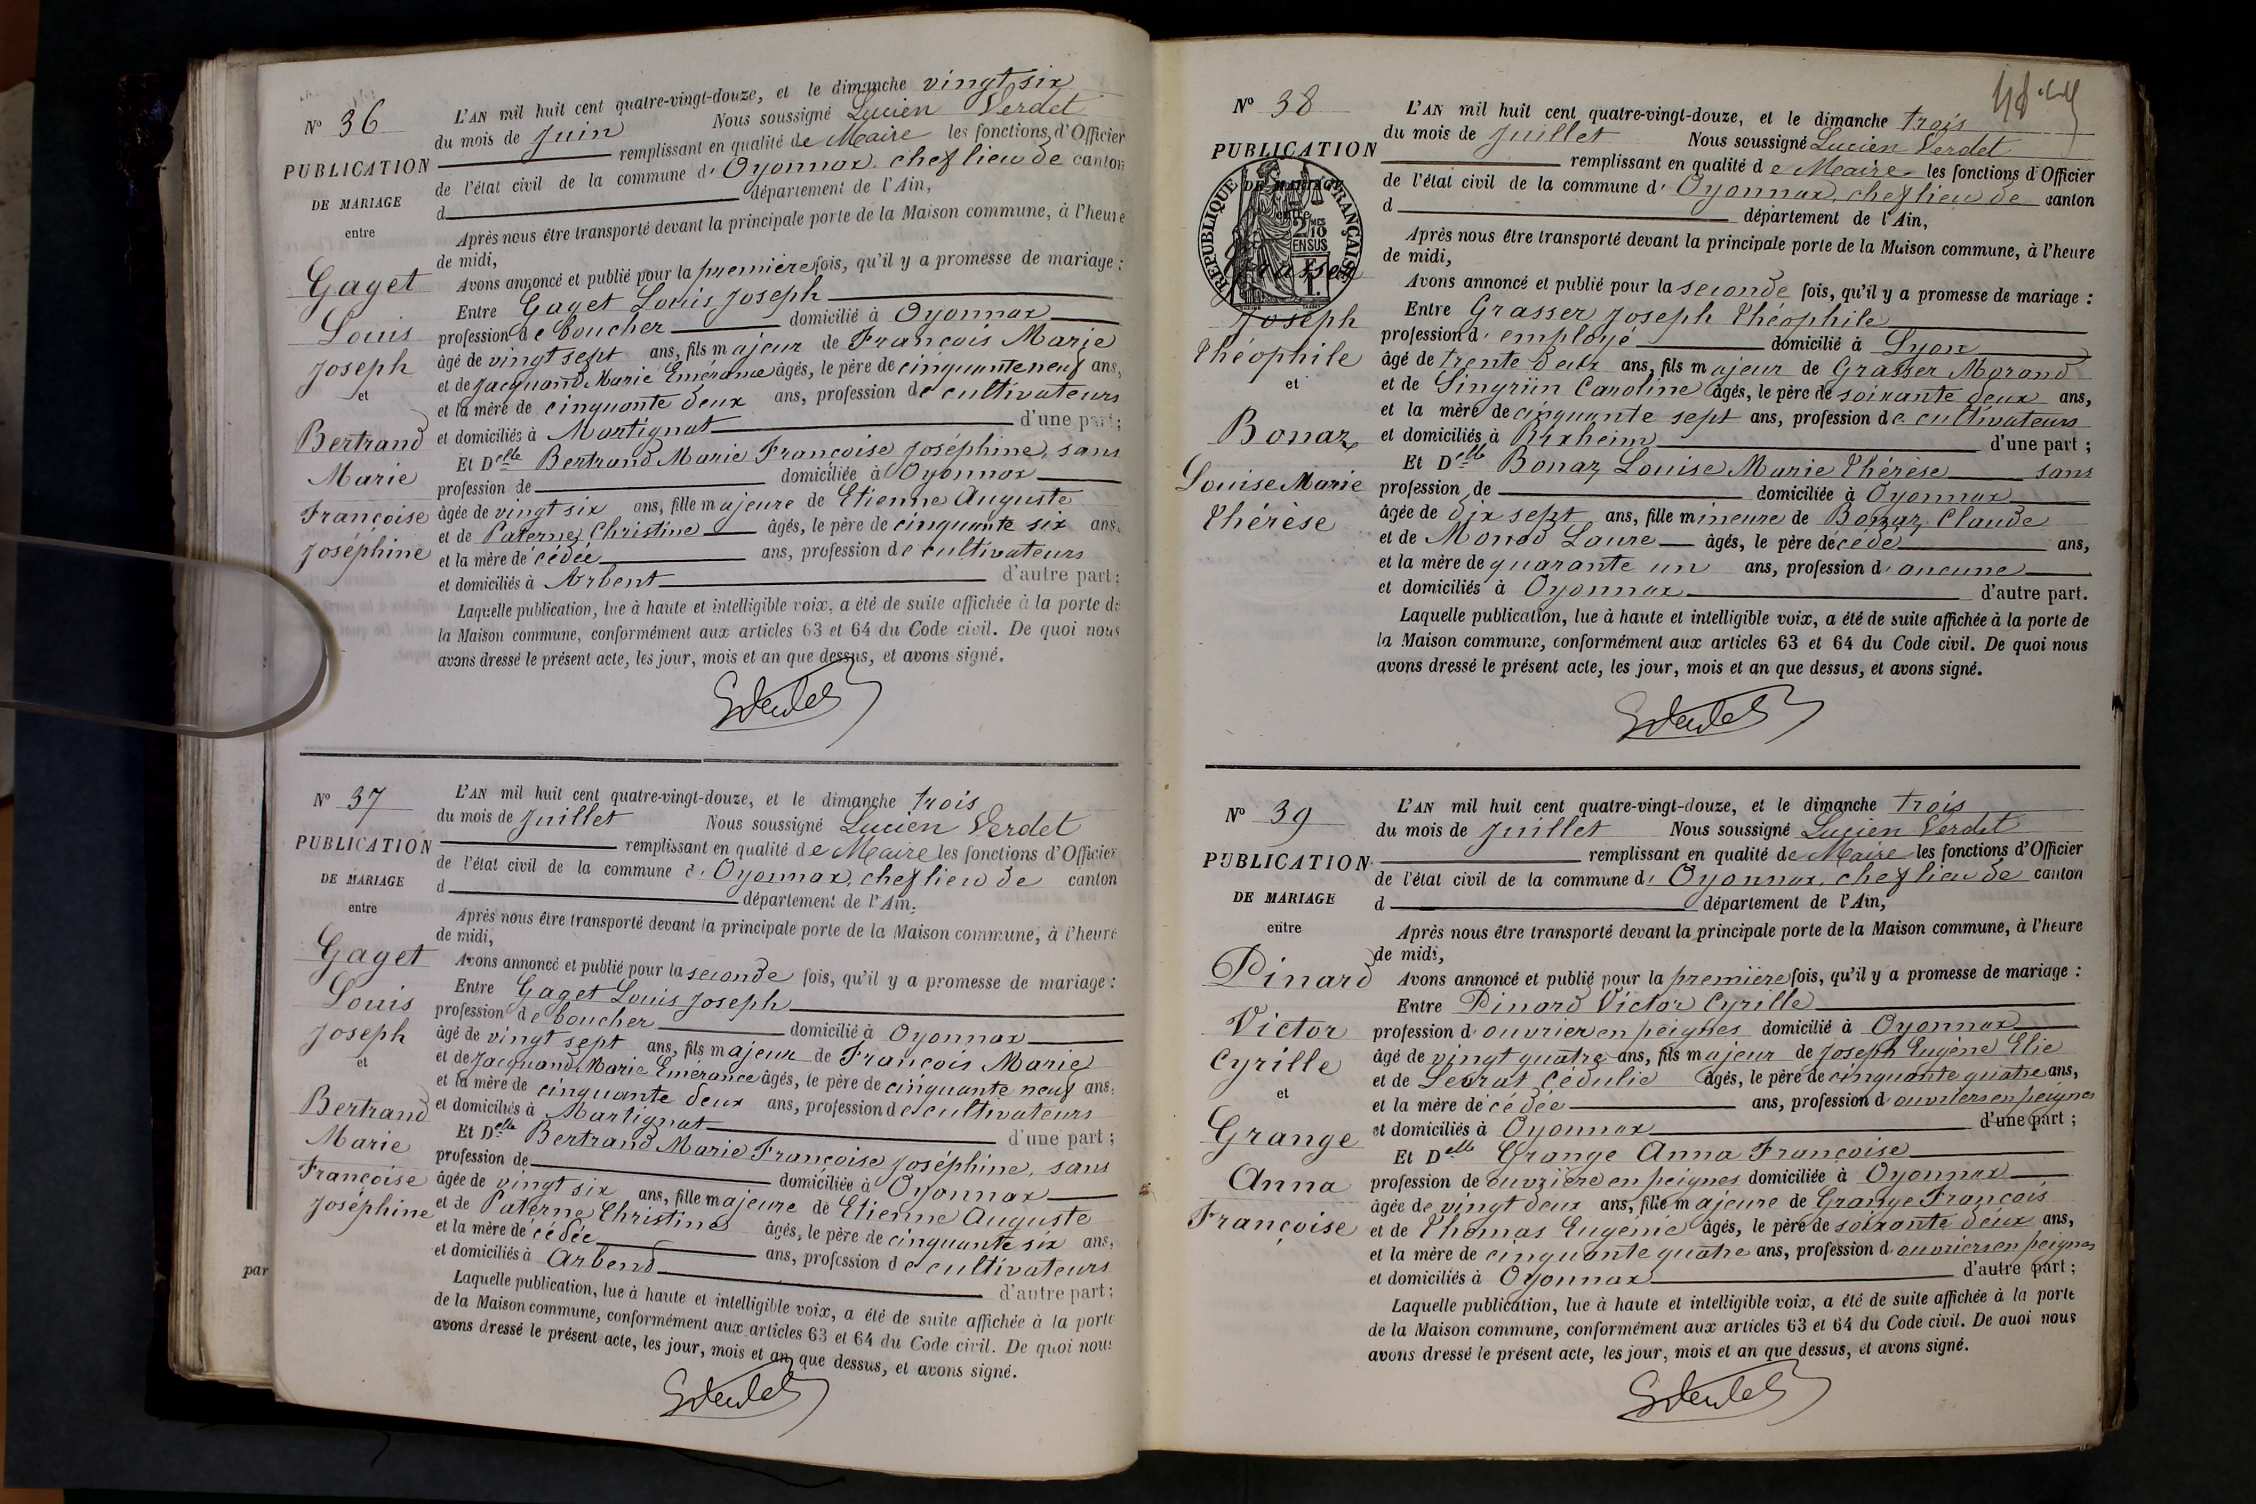 N° 36
PUBLICATION
DE MARIAGE
entre
Gaget
Louis
Joseph
et
Bertrand
Marie
Françoise
Joséphine
L'AN mil huit cent quatre-vingt-douze, et le dimanche vingt six
du mois de Juin Nous soussigné Lucien Verdet
remplissant en qualité de Maire les fonctions d'Officier
de l'état civil de la commune d' Oyonnax, chef lieu de canton
d département de l'Ain,
Après nous être transporté devant la principale porte de la Maison commune, à l'heure
de midi,
Avons annoncé et publié pour la première fois, qu'il y a promesse de mariage :
Entre Gaget Louis Joseph
profession de boucher domicilié à Oyonnax
âgé de vingt sept ans, fils majeur de François Marie
et de Jacquand Marie Emérance âgés, le père de cinquante neuf ans,
et la mère de cinquante deux ans, profession de cultivateurs
et domiciliés à Martignat d'une part;
Et Delle Bertrand Marie Françoise Joséphine, sans
profession de domiciliée à Oyonnax
âgée de vingt six ans, fille majeure de Etienne Auguste
et de Paterne Christine âgés, le père de cinquante six ans.
et la mère décédée ans, profession de cultivateurs
et domiciliés à Arbent d'autre part;
Laquelle publication, lue à haute et intelligible voix, a été de suite affichée à la porte de
la Maison commune, conformément aux articles 63 et 64 du Code civil. De quoi nous
avons dressé le présent acte, les jour, mois et an que dessus, et avons signé.
N° 37
PUBLICATION
DE MARIAGE
entre
Gaget
Louis
Joseph
et
Bertrand
Marie
Françoise
Joséphine
L'AN mil huit cent quatre-vingt-douze, et le dimanche trois
du mois de Juillet Nous soussigné Lucien Verdet
remplissant en qualité de Maire les fonctions d'Officier
de l'état civil de la commune d' Oyonnax, chef lieu de canton
d département de l'Ain,
Après nous être transporté devant la principale porte de la Maison commune, à l'heure
de midi,
Avons annoncé et publié pour la seconde fois, qu'il y a promesse de mariage :
Entre Gaget Louis Joseph
profession de boucher domicilié à Oyonnax
âgé de vingt sept ans, fils majeur de François Marie
et de Jacquand Marie Emérance âgés, le père de cinquante neuf ans.
et la mère de cinquante deux ans, profession de cultivateurs
et domiciliés à Martignat d'une part ;
Et Delle Bertrand Marie Françoise Joséphine, sans
profession de domiciliée à Oyonnax
âgée de vingt six ans, fille majeure de Etienne Auguste
et de Paterne Christine âgés, le père de cinquante six ans,
et la mère décédée ans, profession de cultivateurs
et domiciliés à Arbend d'autre part;
Laquelle publication, lue à haute et intelligible voix, a été de suite affichée à la porte
de la Maison commune, conformément aux articles 63 et 64 du Code civil. De quoi nous
avons dressé le présent acte, les jour, mois et an que dessus, et avons signé.
par
N° 38
PUBLICATION
DE MARIAGE
entre
REPUBLIQUE FRANÇAISE
2/10
EN SUS
Grasser
Joseph
Théophile
et
Bonaz
Louise Marie
Thérèse
L'AN mil huit cent quatre-vingt-douze, et le dimanche trois
du mois de Juillet Nous soussigné Lucien Verdet
remplissant en qualité de Maire les fonctions d'Officier
de l'état civil de la commune d' Oyonnax, chef lieu de canton
d département de l'Ain,
Après nous être transporté devant la principale porte de la Maison commune, à l'heure
de midi,
Avons annoncé et publié pour la seconde fois, qu'il y a promesse de mariage :
Entre Grasser Joseph Théophile
profession d' employé domicilié à Lyon
âgé de trente deux ans, fils majeur de Grasser Morand
et de Singriin Caroline âgés, le père de soixante deux ans,
et la mère de cinquante sept ans, profession de cultivateurs
et domiciliés à Rixheim d'une part ;
Et Delle Bonaz Louise Marie Thérèse sans
profession de domiciliée à Oyonnax
âgée de dix sept ans, fille mineure de Bonaz Claude
et de Monod Laure âgés, le père décédé ans,
et la mère de quarante un ans, profession d' aucune
et domiciliés à Oyonnax d'autre part.
Laquelle publication, lue à haute et intelligible voix, a été de suite affichée à la porte de
la Maison commune, conformément aux articles 63 et 64 du Code civil. De quoi nous
avons dressé le présent acte, les jour, mois et an que dessus, et avons signé.
N° 39
PUBLICATION
DE MARIAGE
entre
Pinard
Victor
Cyrille
et
Grange
Anna
Françoise
L'AN mil huit cent quatre-vingt-douze, et le dimanche trois
du mois de Juillet Nous soussigné Lucien Verdet
remplissant en qualité de Maire les fonctions d'Officier
de l'état civil de la commune d' Oyonnax, chef lieu de canton
d département de l'Ain,
Après nous être transporté devant la principale porte de la Maison commune, à l'heure
de midi,
Avons annoncé et publié pour la première fois, qu'il y a promesse de mariage :
Entre Pinard Victor Cyrille
profession d' ouvrier en peignes domicilié à Oyonnax
âgé de vingt quatre ans, fils majeur de Joseph Eugène Elie
et de Levrat Cédulie âgés, le père de cinquante quatre ans,
et la mère décédée ans, profession d' ouvriers en peignes
et domiciliés à Oyonnax d'une part ;
Et Delle Grange Anna Françoise
profession de ouvrière en peignes domiciliée à Oyonnax
âgée de vingt deux ans, fille majeure de Grange François
et de Thomas Eugénie âgés, le père de soixante deux ans,
et la mère de cinquante quatre ans, profession d' ouvriers en peignes
et domiciliés à Oyonnax d'autre part ;
Laquelle publication, lue à haute et intelligible voix, a été de suite affichée à la porte
de la Maison commune, conformément aux articles 63 et 64 du Code civil. De quoi nous
avons dressé le présent acte, les jour, mois et an que dessus, et avons signé.